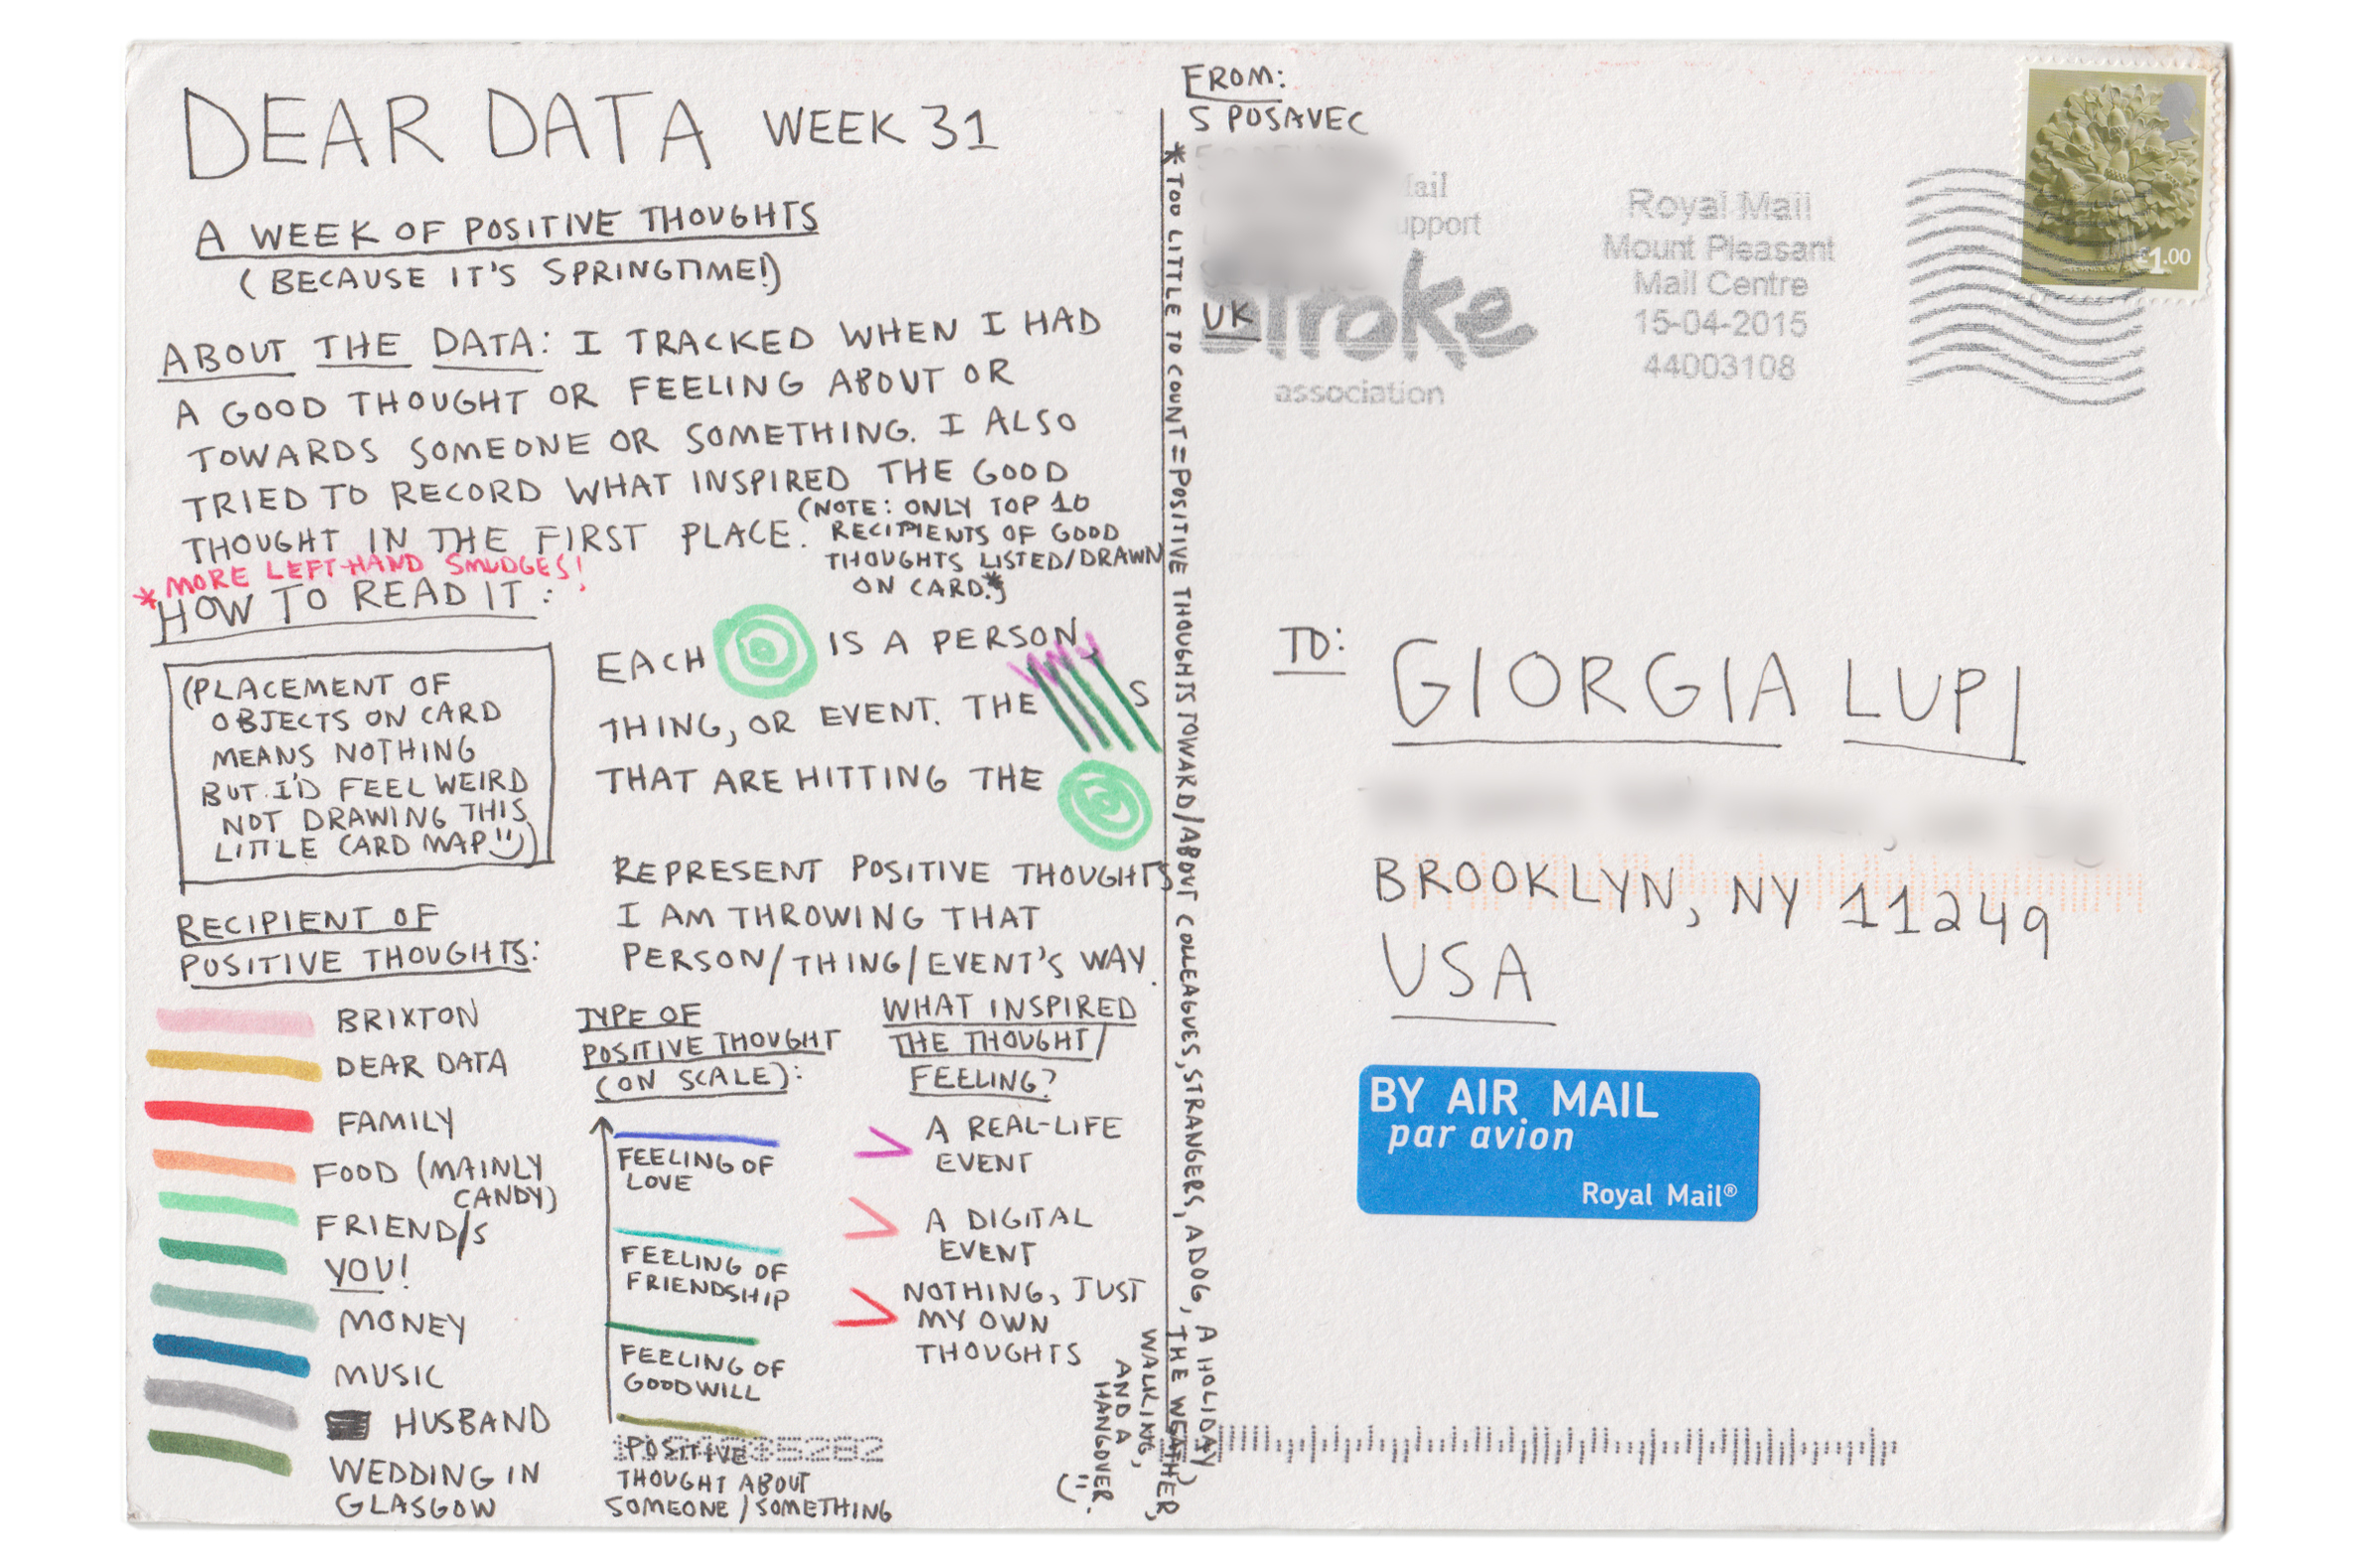 DEAR DATA WEEK 31
A WEEK OF POSITIVE THOUGHTS
(BECAUSE IT'S SPRINGTIME!)
ABOUT THE DATA: I TRACKED WHEN I HAD
A GOOD THOUGHT OR FEELING ABOUT OR
TOWARDS SOMEONE OR SOMETHING. I ALSO
TRIED TO RECORD WHAT INSPIRED THE GOOD
THOUGHT IN THE FIRST PLACE.
(NOTE: ONLY TOP 10
RECIPIENTS OF GOOD
THOUGHTS LISTED/DRAWN
ON CARD.*)
*MORE LEFT-HAND SMUDGES!
HOW TO READ IT:
(PLACEMENT OF
OBJECTS ON CARD
MEANS NOTHING
BUT I'D FEEL WEIRD
NOT DRAWING THIS
LITTLE CARD MAP)
EACH IS A PERSON,
THING, OR EVENT. THE S
THAT ARE HITTING THE
REPRESENT POSITIVE THOUGHTS
I AM THROWING THAT
PERSON/THING/EVENT'S WAY.
RECIPIENT OF
POSITIVE THOUGHTS:
BRIXTON
DEAR DATA
FAMILY
FOOD (MAINLY
CANDY)
FRIEND/S
YOU!
MONEY
MUSIC
HUSBAND
WEDDING IN
GLASGOW
TYPE OF
POSITIVE THOUGHT
(ON SCALE):
FEELING OF
LOVE
FEELING OF
FRIENDSHIP
FEELING OF
GOODWILL
POSITIVE
THOUGHT ABOUT
SOMEONE/SOMETHING
WHAT INSPIRED
THE THOUGHT/
FEELING?
A REAL-LIFE
EVENT
A DIGITAL
EVENT
NOTHING, JUST
MY OWN
THOUGHTS
*TOO LITTLE TO COUNT=POSITIVE THOUGHTS TOWARD/ABOUT COLLEAGUES, STRANGERS, A DOG, A HOLIDAY
THE WEATHER,
WALKING,
AND A
HANGOVER.
FROM:
S POSAVEC
UK
stroke
association
Royal Mail
Mount Pleasant
Mail Centre
15-04-2015
44003108
£1.00
TO: GIORGIA LUPI
BROOKLYN, NY 11249
USA
BY AIR MAIL
par avion
Royal Mail®